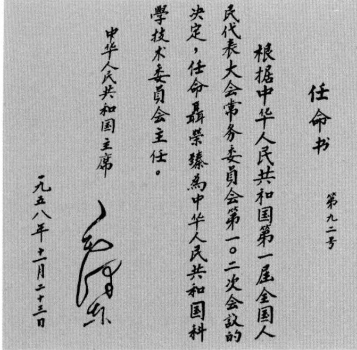 任命书
第九二号
根据中华人民共和国第一届全国人
民代表大会常务委员会第一〇二次会议的
决定，任命聶榮臻為中华人民共和国科
學技术委員会主任。
中华人民共和国主席
毛泽东
一九五八年十一月二十三日